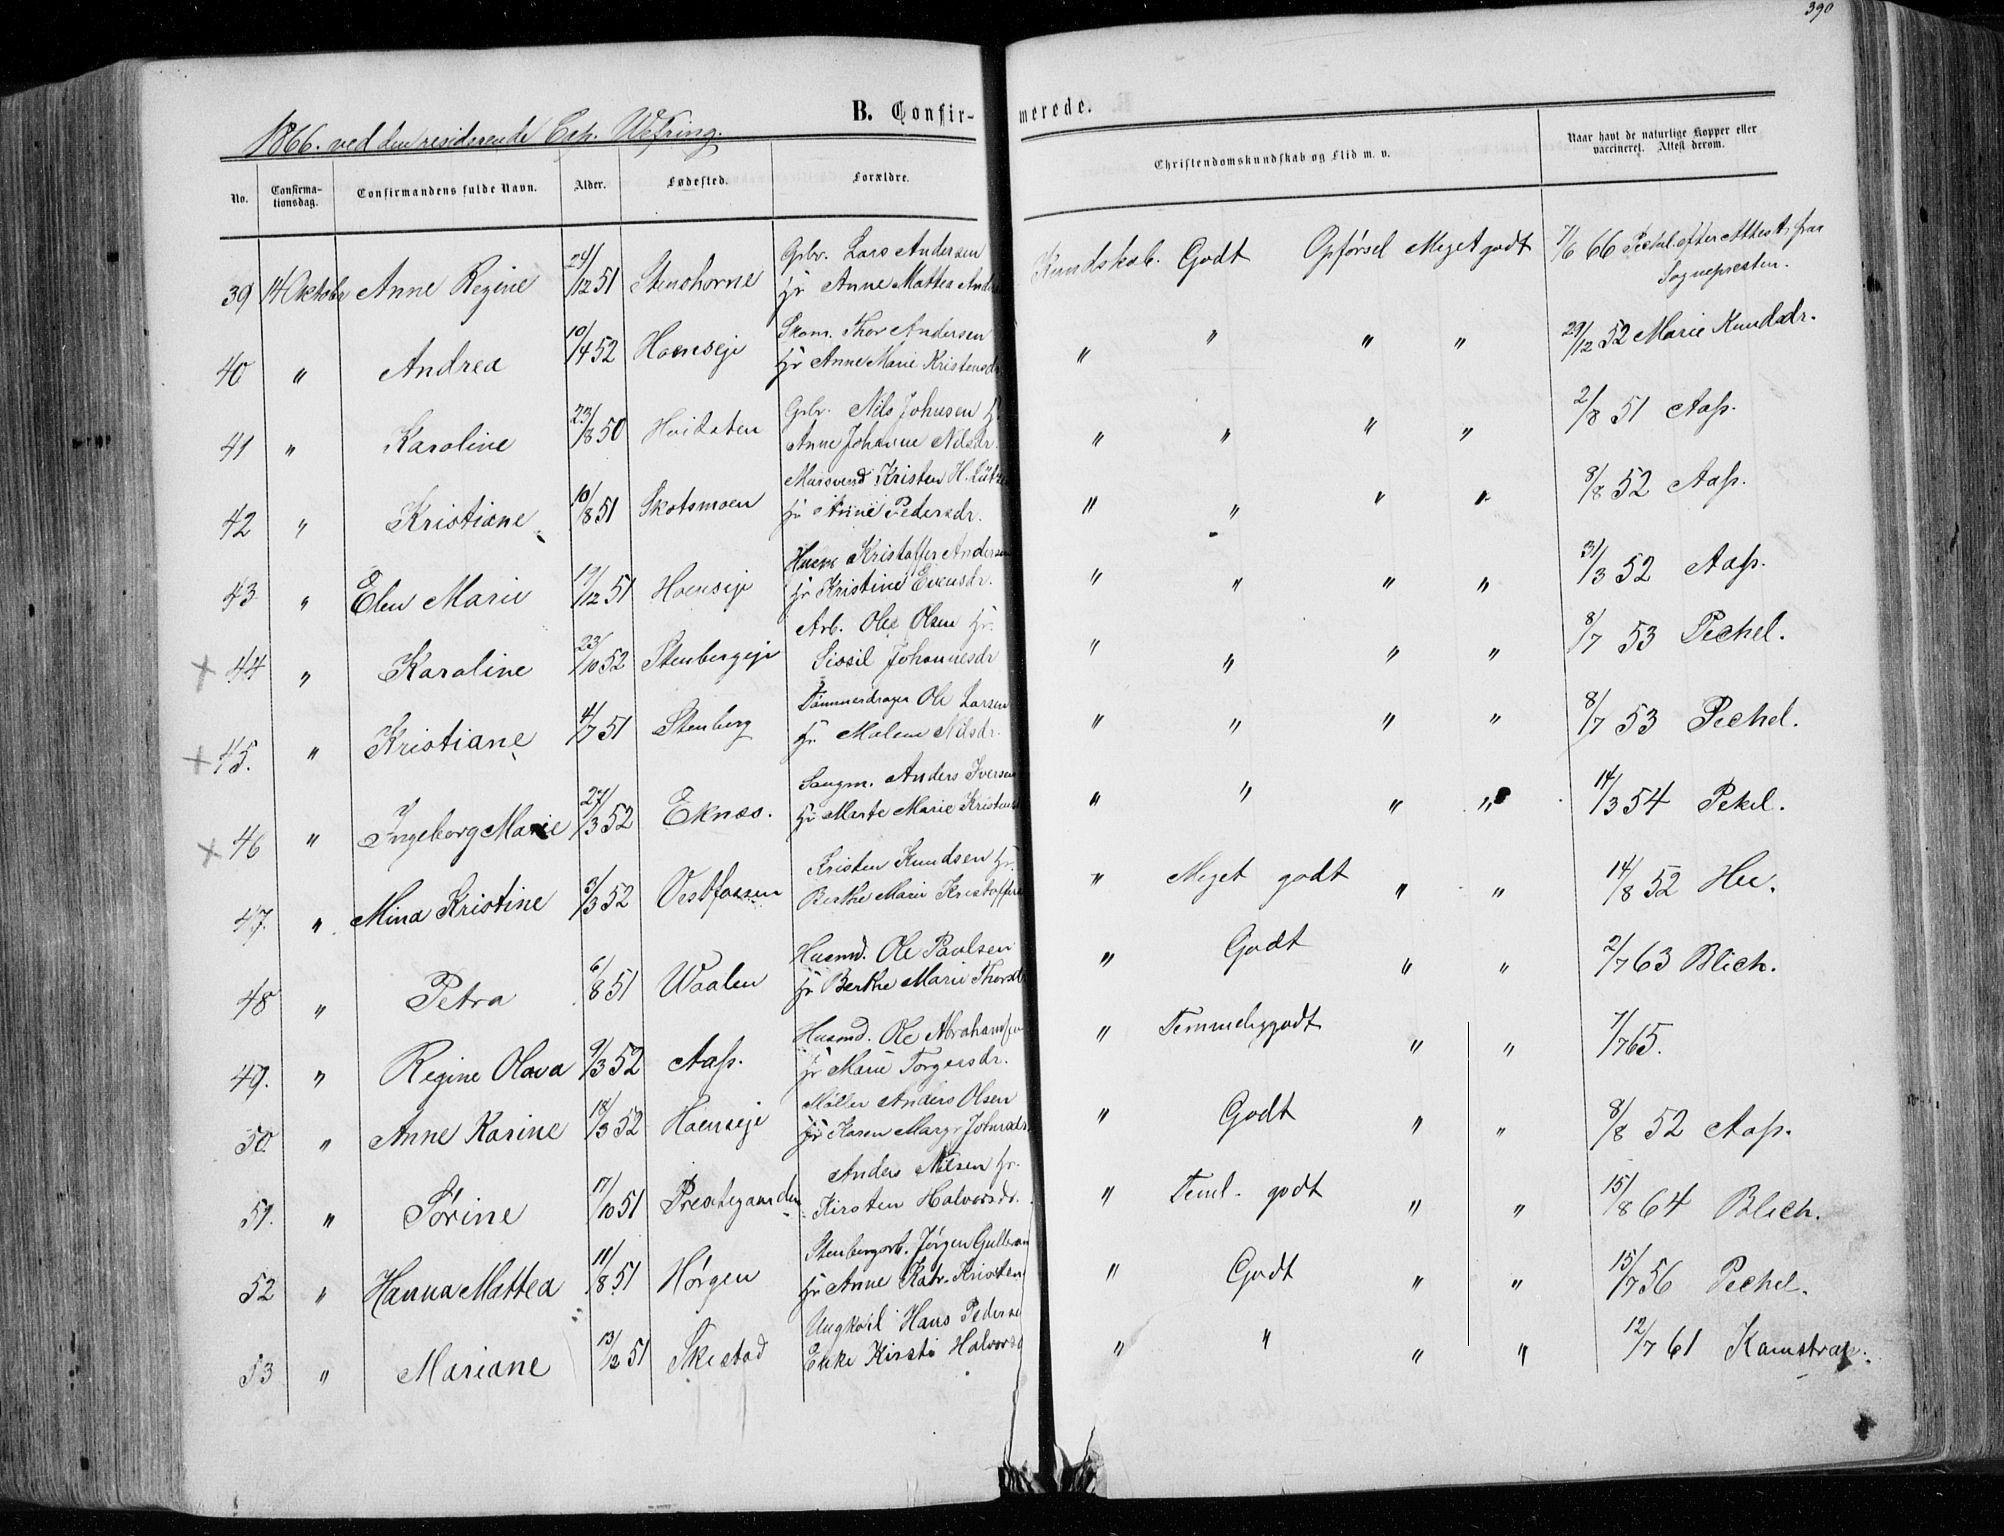 390
B. Confirmerede.
1866. ved den residerende Cap. Wefring.
No. Confirmationsdag. Confirmandens fulde Navn. Alder. Fødested. Forældre. Christendomskundskab og Flid m. v. Naar havt de naturlige Kopper eller vaccineret. Attest derom.
Gbr. Lars Andersen
39 14 Oktober Anne Regine 24/12 51 Stenshorne hr Anne Mattea Kundskab. Godt Opførsel Meget godt 7/6 66 Pechel. efter Attest fra
Sognepresten.
Skom. Thor Andersen
40 " Andrea 10/4 52 Hoenseje hr Anne Marie Kristensdr " " " " 29/12 52 Marie Knudsdr.
Gbr. Nils Johnsen hr
41 " Karoline 23/8 50 Hvidsten Anne Johanne Nilsdr. " " " " 2/8 51 Aass.
Kristen H.
42 " Kristiane 10/8 51 Skotsmoen hr Anne Pedersdr. " " " " 3/8 52 Aass.
Kristoffer Andersen
43 " Elen Marie 17/12 51 Hoenseje hr Kristine Evensdr. " " " " 31/3 52 Aass.
Arb. Ole Olsen hr.
44 " Karoline 23/10 52 Stenbergeje Sissil Johannesdr " " " " 8/7 53 Pechel.
Tømmerdrager Ole Larsen
45. " Kristiane 4/7 51 Stenberg hr Malene Nilsdr. " " " " 8/7 53 Pechel.
Saugm. Anders Iversen
46 " Ingeborg Marie 27/3 52 Eknæs. hr Marte Marie " " " " 14/3 54 Pekel.
Kristen Knudsen hr.
47. " Mina Kristine 5/3 52 Vestfossen Berthe Marie " Meget godt " " 14/8 52 Hu.
Husmd. Ole Paulsen
48 " Petra 6/8 51 Waalen hr Berthe Marie Thorsdr " Godt " " 2/7 63 Blich.
Husmd. Ole
49. " Regine Olava 9/3 52 Aass. hr Marie Torgersdr. " Temmeliggodt " " 7/7 65.
Møller Anders Olsen
50. " Anne Karine 18/3 52 Hoenseje hr Karen Margr Johnsdr. " Godt " " 8/8 52 Aass.
Anders Nilsen hr.
51. " Sørine 17/10 51 Prestegaarden Kirsten Halvorsdr. " Teml. godt " " 15/8 64 Blich.
Jørgen
52 " Hanna Mattea 11/8 51 Hørgen hr Anne Katr. " Godt " " 15/7 56 Pechel.
Ungkarl Hans
53 " Mariane 13/12 51 Skistad Enke Kirsti " " " " 12/7 61 Kamstrap.